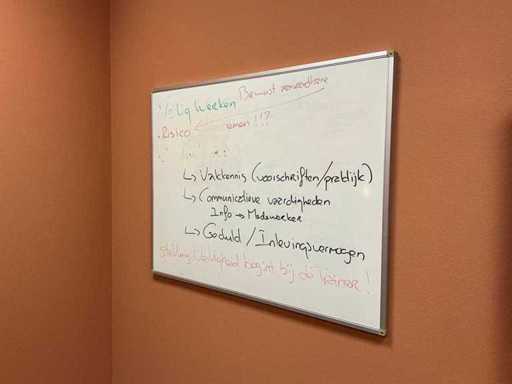 Veilig Werken
Risico
nemen !!?
↳ Vakkennis (voorschriften/praktijk)
↳ Communicatieve vaardigheden
Info → Medewerker
↳ Geduld / Inlevingsvermogen
Stelling: Veiligheid begint bij de Trainer!